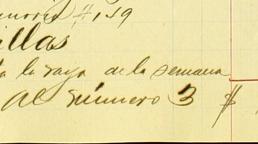 #159
illas
la raya de la semana
al número 3 $